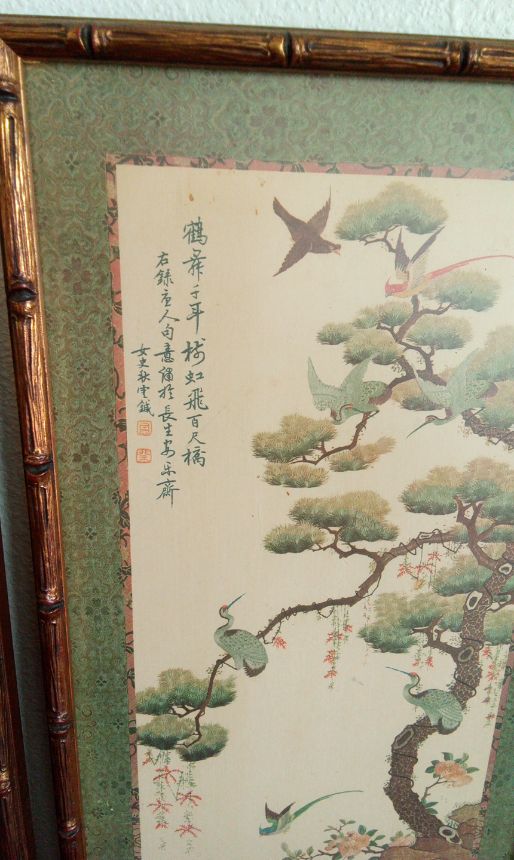 鶴舞千年樹虹飛百尺橋
右錄唐人句意繡於長生安樂齋
女史秋雲鍼